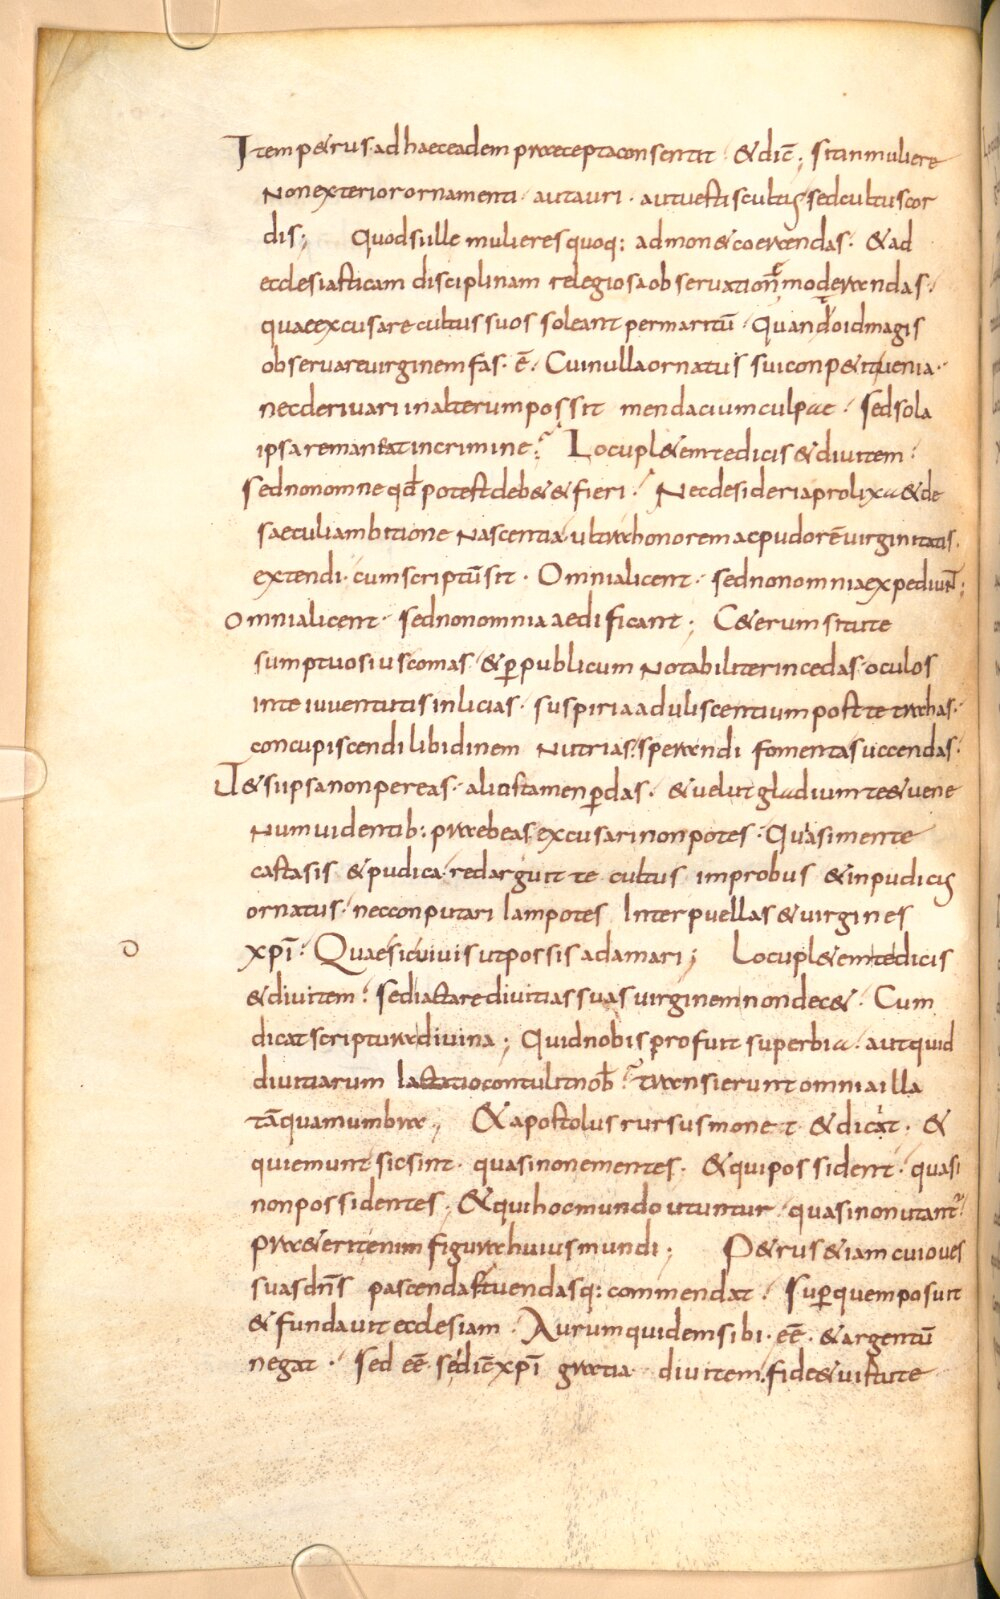 Item p&rus. ad haec eadem praecepta consentit. & dic̄; sit in muliere
Non exterior ornamenti. aut auri. aut uestis cultus sed cultus cor
dis; Quod si ille mulieres quoq: admon& coercendas. & ad
ecclesiasticam disciplinam relegiosa obseruation̄e moderandas.
quae excusare cultus suos soleant per maritū. Quando id magis
obseruare uirginem fas. ē. Cui nulla ornatus sui conp&it uenia.
nec deriuari in alterum possit mendacium culpae. Sed sola
ipsa remaneat in crimine; Locupl&em te dicis & diuitem.
Sed non omne qd̄ potest deb& & fieri. Nec desideria prolixa & de
saeculi ambitione Nascentia. ultra honorem ac pudorē uirginitatis.
extendi. cum scriptū sit. Omnia licent. sed non omnia expediunt;
omnia licent. sed non omnia aedificant; C&erum si tu te
sumptuosius comas & ꝑ publicum Notabiliter incedas. oculos
in te iuuentutis inlicias. suspiria aduliscentium post te trahas.
concupiscendi libidinem Nutrias. sperandi fomenta succendas.
U& si ipsa non pereas. alios tamen ꝑdas. & uelut gladium te & uene
Num uidentib: praebeas excusari non potes. Quasi mente
casta sis & pudica. redarguit te cultus improbus & inpudicus
ornatus. nec conputari iam potes Inter puellas & uirgines
xpī. Quae sic uiuis ut possis adamari; Locupl&em te dicis
& diuitem. sed iactare diuitias suas uirginem non dec&. Cum
dicat scriptura diuina; Quid nobis profuit superbia. aut quid
diuitiarum Iactatio contulit nob̄. transierunt omnia illa
tāquam umbra; & apostolus rursus monet & dicat. &
qui emunt sic sint. quasi non ementes. & qui possident. quasi
non possidentes. & qui hoc mundo utuntur. quasi non utant~
Pra&erit enim figura huius mundi; P&rus &iam cui oues
suas dn̄s pascendas tuendasq: commendat. Super quem posuit
& fundauit ecclesiam. Aurum quidem sibi. eē. & argentū
negat. Sed eē. se dic̄ xpī gratia diuitem. fide & uirtute